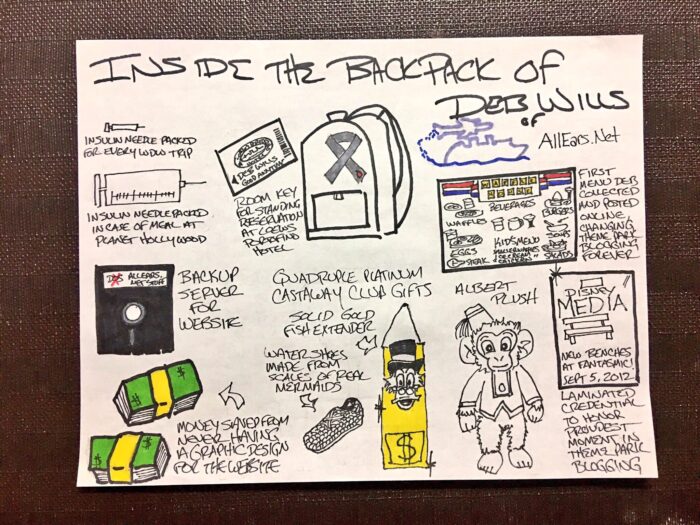 INSIDE THE BACKPACK OF
DEB WILLS
OF
AllEars.Net
INSULIN NEEDLE PACKED
FOR EVERY WDW TRIP
INSULIN NEEDLE PACKED
IN CASE OF MEAL AT
PLANET HOLLYWOOD
DEB WILLS
ROOM KEY
FOR STANDING
RESERVATION
AT LOEWS
PORTOFINO
HOTEL
BEVERAGES
WAFFLES
BURGERS
EGGS
KIDS MENU
SOUPS
STEAK
SALADS
FIRST
MENU DEB
COLLECTED
AND POSTED
ONLINE,
CHANGING
THEME PARK
BLOGGING
FOREVER
ALLEARS.
NET STUFF
BACKUP
SERVER
FOR
WEBSITE
QUADRUPLE PLATINUM
CASTAWAY CLUB GIFTS
SOLID GOLD
FISH EXTENDER
WATER SHOES
MADE FROM
SCALES OF REAL
MERMAIDS
$
$
$
MONEY SAVED FROM
NEVER HAVING
A GRAPHIC DESIGN
FOR THE WEBSITE
ALBERT
PLUSH
DISNEY
MEDIA
NEW BENCHES
AT FANTASMIC!
SEPT 5, 2012
LAMINATED
CREDENTIAL
TO HONOR
PROUDEST
MOMENT IN
THEME PARK
BLOGGING